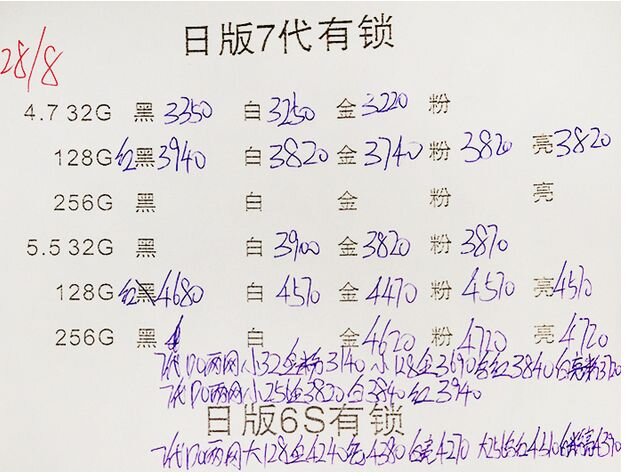 日版7代有锁
28/8
4.7 32G 黑 3350 白 3250 金 3220 粉
128G 红黑 3940 白 3820 金 3740 粉 3820 亮 3820
256G 黑 白 金 粉 亮
5.5 32G 黑 白 3900 金 3820 粉 3870
128G 红 4680 白 4570 金 4470 粉 4570 亮 4570
256G 黑 白 金 4620 粉 4720 亮 4720
7代Do两网小32金粉3140 小128金3690 红3840 白亮粉3720
7代Do两网小256金3820白3840红3940
日版6S有锁
7代Do两网大128金4240 4380 4270 大256 4390